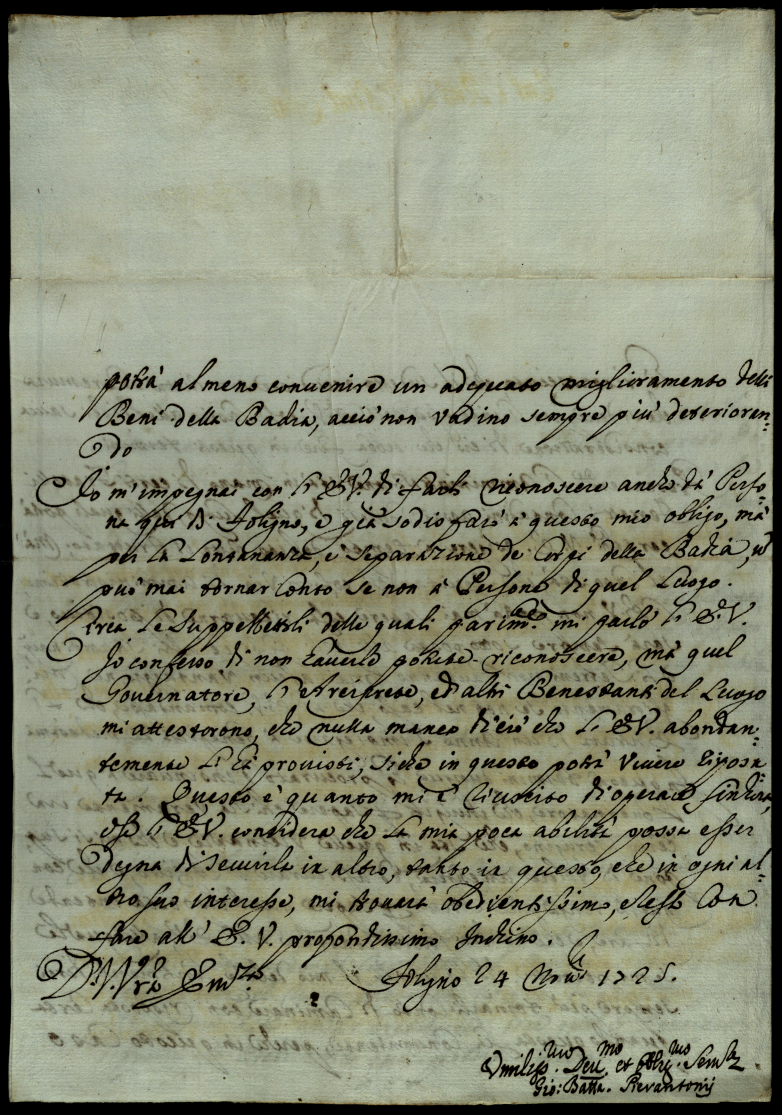 potrà almeno convenire un adequato miglioramento delli
Beni della Badia, acciò non vadino sempre più deterioran=
do
Io m'impegnai con l'E.V. di farli riconoscere anche da Perso=
na qui di Foligno, e già sodisfarò à questo mio obligo, mà
per la Lontananza, e separazione de Corpi della Badia,
può mai tornar Conto se non à Persone di quel Luogo.
Circa le Suppellettili delle quali parim.te mi parlò l'E.V.
Io confesso di non haverle potute riconoscere, mà quel
Governatore, l'Arciprete, ed altri Benestanti del Luogo
mi attestorono, che nulla manca di ciò che l'E.V. abondan=
temente li hà provisti, siche in questo potrà vivere riposa
ta. Questo è quanto mi è riuscito di operare sin hora,
e se l'E.V. considera che la mia poca abilità possa esser
degna di servirla in altro, tanto in questo, che in ogni al=
tro suo interesse, mi troverà obedientissimo, e resto con
fare all'E.V. profondissimo Inchino.
D.V.ra Em.za Foligno 24 1725.
Umiliss.mo Dev.mo et Oblig.mo Serv.re
Gio: Batta. Pierantonij